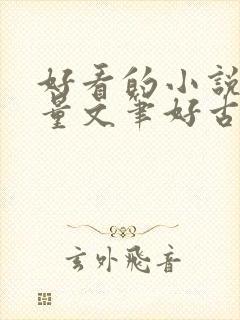 好看的小說
量文筆好古
玄外飛音